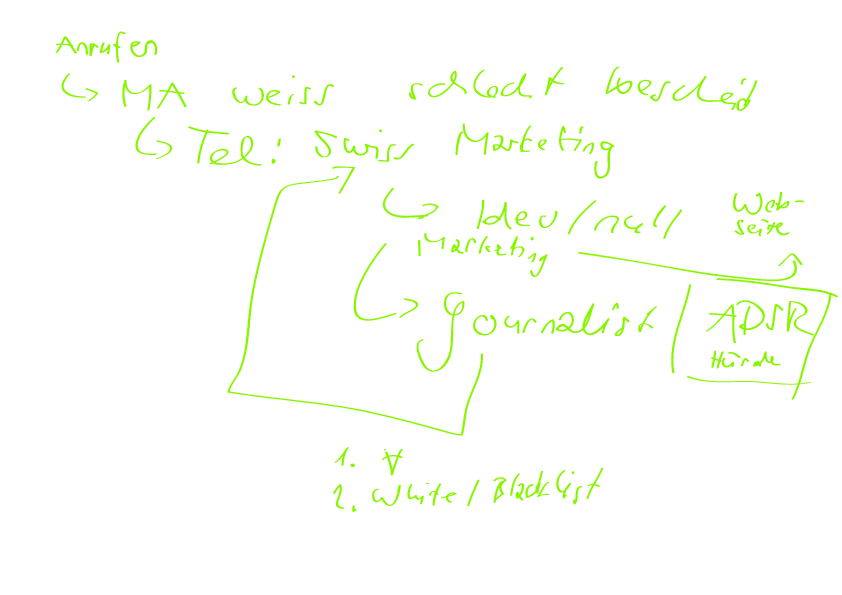 Anrufen
MA weiss schlecht bescheid
Tel: Swiss Marketing
/dev/null
Web-
seite
Marketing
Journalist
ADSR
Hürde
1. ∀
2. White/Blacklist